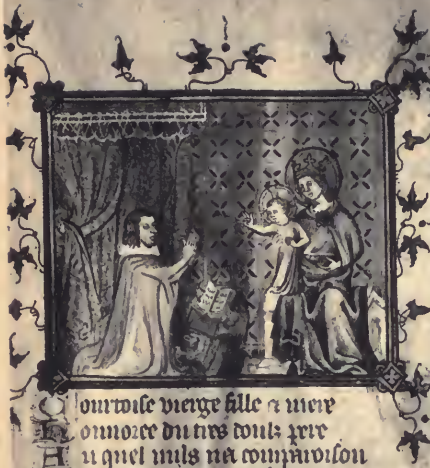 Courtoise vierge fille & mere
Honnoree du tres doulz pere
Au quel nuls na comparoison